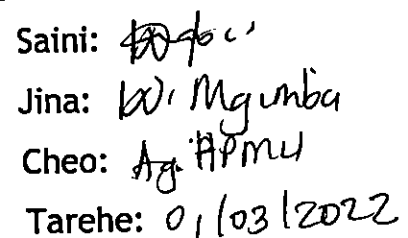 Saini:
Jina: W. Mgumba
Cheo: Ag. HPMU
Tarehe: 01/03/2022